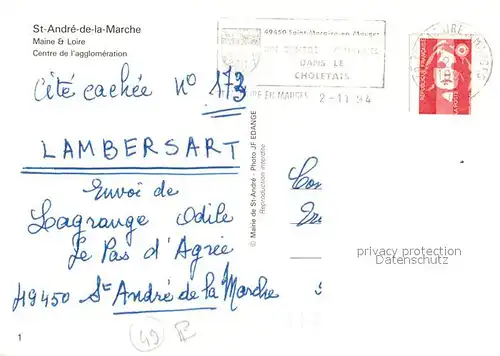 St-André-de-la-Marche
Maine & Loire
Centre de l'agglomération
Cité cachée N° 173
LAMBERSART
Envoi de
Lagrange Odile
Le Pas d'Agrée
49450 St André de la Marche
1
49
© Mairie de St-André - Photo JF EDANGE
Reproduction interdite
49450 Saint-Macaire-en-Mauges
DANS LE
CHOLETAIS
EN MAUGES 2-11 94
REPUBLIQUE FRANÇAISE
LA POSTE
privacy protection
Datenschutz